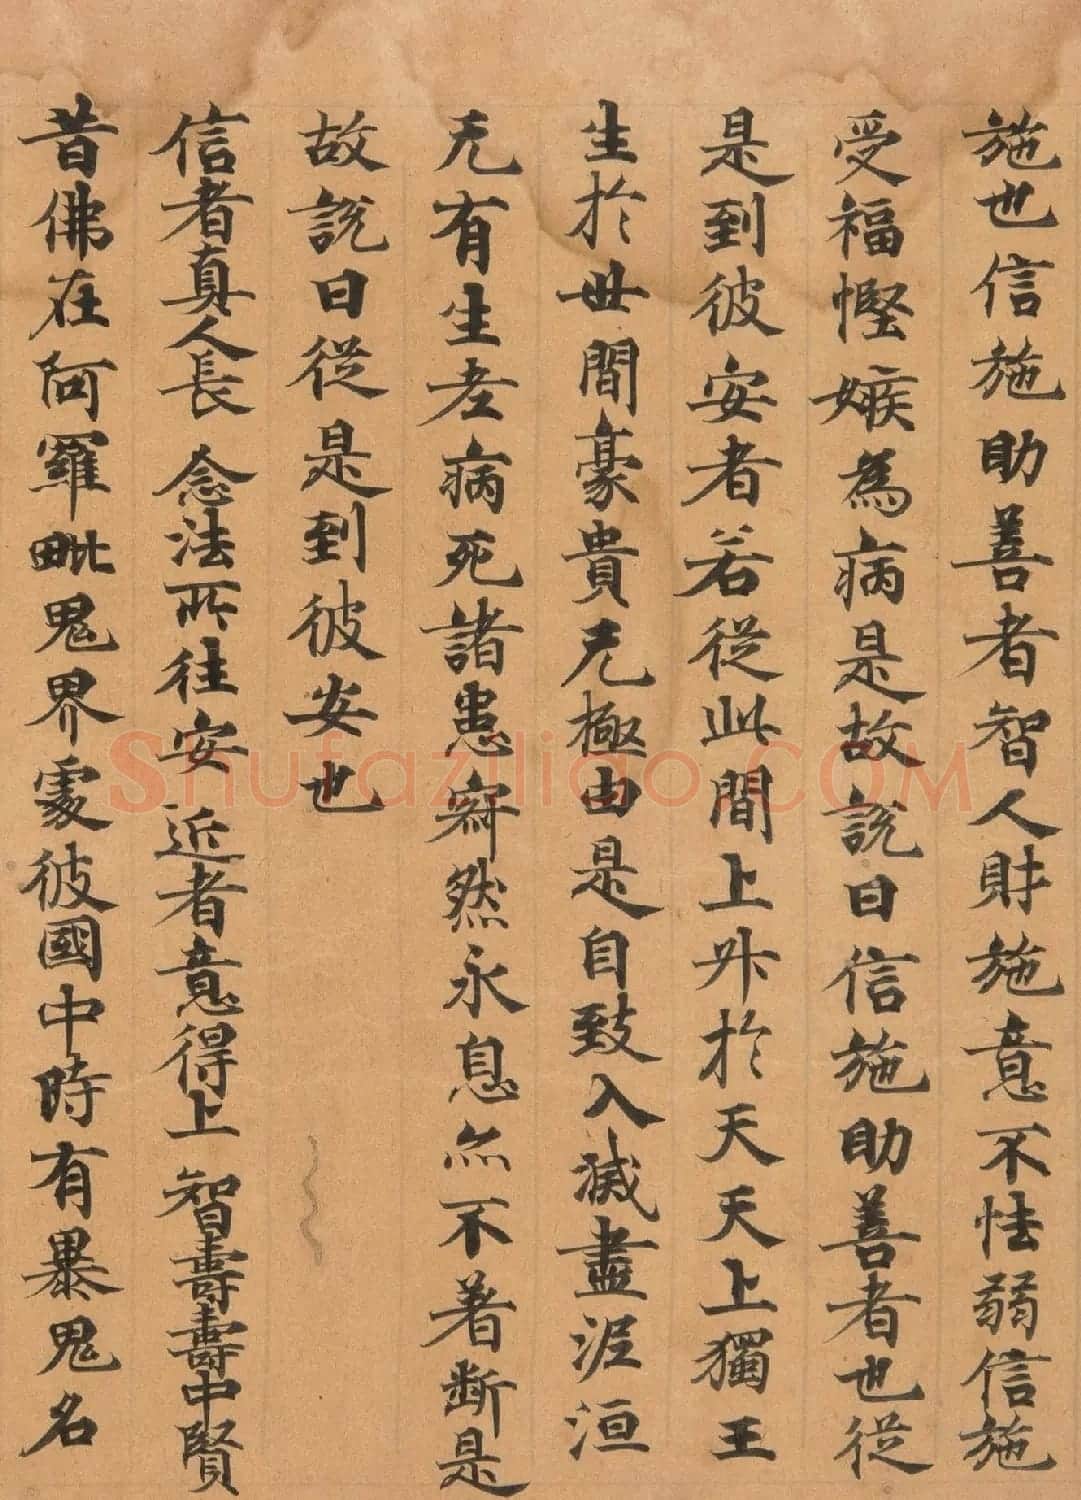 施也信施助善者智人財施意不怯弱信施
受福慳嫉為病是故說曰信施助善者也從
是到彼安者若從此間上升於天天上獨王
生於世間豪貴无極由是自致入滅盡泥洹
无有生老病死諸患寂然永息亦不著斷是
故說曰從是到彼安也
信者真人長 念法所住安 近者意得上 智壽壽中賢
昔佛在阿羅毗鬼界處彼國中時有暴鬼名
Shufaziliao.COM